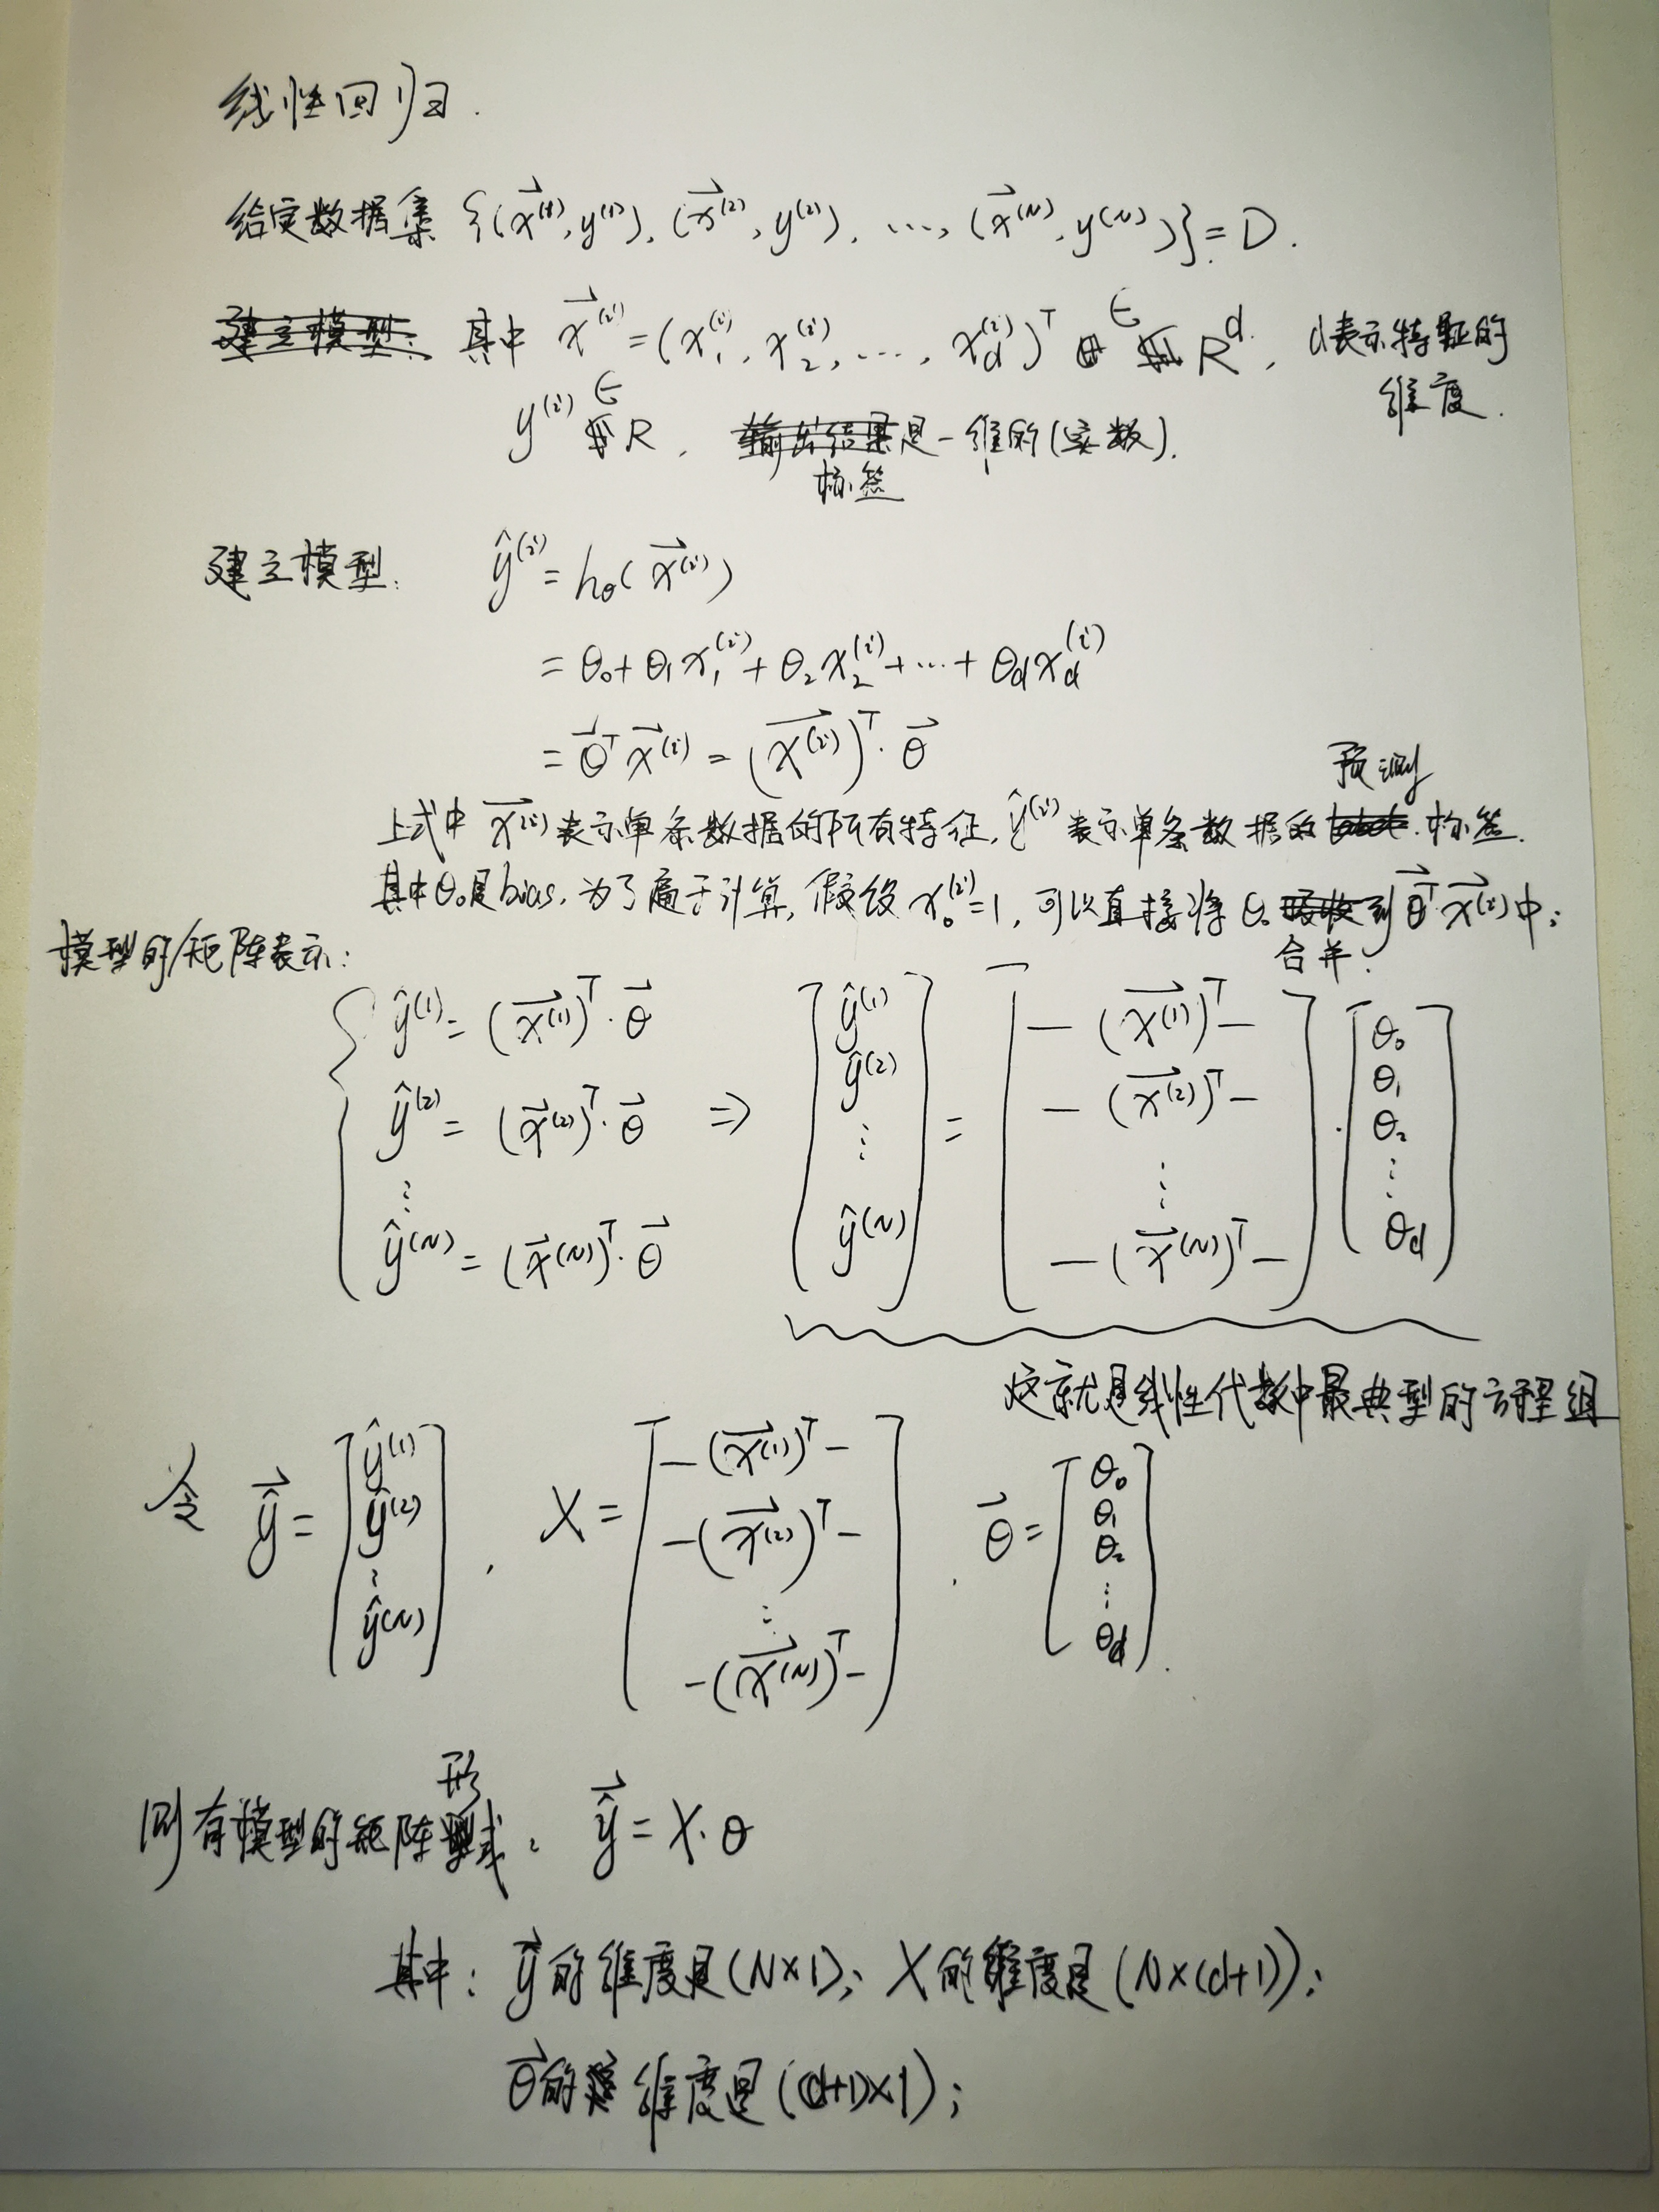 线性回归.
给定数据集 {(x⃗⁽¹⁾, y⁽¹⁾), (x⃗⁽²⁾, y⁽²⁾), ..., (x⃗⁽ᴺ⁾, y⁽ᴺ⁾)} = D.
其中 x⃗⁽ⁱ⁾ = (x₁⁽ⁱ⁾, x₂⁽ⁱ⁾, ..., x_d⁽ⁱ⁾)ᵀ ∈ Rᵈ, d表示特征的维度.
y⁽ⁱ⁾ ∈ R, 标签是一维的(实数).
建立模型: ŷ⁽ⁱ⁾ = h_θ(x⃗⁽ⁱ⁾)
= θ₀ + θ₁x₁⁽ⁱ⁾ + θ₂x₂⁽ⁱ⁾ + ... + θ_d x_d⁽ⁱ⁾
= θ⃗ᵀ x⃗⁽ⁱ⁾ = (x⃗⁽ⁱ⁾)ᵀ · θ⃗
上式中 x⃗⁽ⁱ⁾ 表示单条数据的所有特征, ŷ⁽ⁱ⁾ 表示单条数据的预测标签.
其中θ₀是bias, 为了便于计算, 假设 x₀⁽ⁱ⁾ = 1, 可以直接将 θ₀ 合并到 θ⃗ᵀ·x⃗⁽ⁱ⁾ 中;
模型的矩阵表示:
ŷ⁽¹⁾ = (x⃗⁽¹⁾)ᵀ · θ⃗
ŷ⁽²⁾ = (x⃗⁽²⁾)ᵀ · θ⃗
⋮
ŷ⁽ᴺ⁾ = (x⃗⁽ᴺ⁾)ᵀ · θ⃗
⇒ [ŷ⁽¹⁾ ŷ⁽²⁾ ⋮ ŷ⁽ᴺ⁾] = [— (x⃗⁽¹⁾)ᵀ — — (x⃗⁽²⁾)ᵀ — ⋮ — (x⃗⁽ᴺ⁾)ᵀ —] · [θ₀ θ₁ θ₂ ⋮ θ_d]
这就是线性代数中最典型的方程组
令 ŷ⃗ = [ŷ⁽¹⁾ ŷ⁽²⁾ ⋮ ŷ⁽ᴺ⁾], X = [— (x⃗⁽¹⁾)ᵀ — — (x⃗⁽²⁾)ᵀ — ⋮ — (x⃗⁽ᴺ⁾)ᵀ —], θ⃗ = [θ₀ θ₁ θ₂ ⋮ θ_d].
则有模型的矩阵形式: ŷ⃗ = X · θ
其中: y⃗的维度是(N×1); X的维度是(N×(d+1));
θ⃗的维度是((d+1)×1);